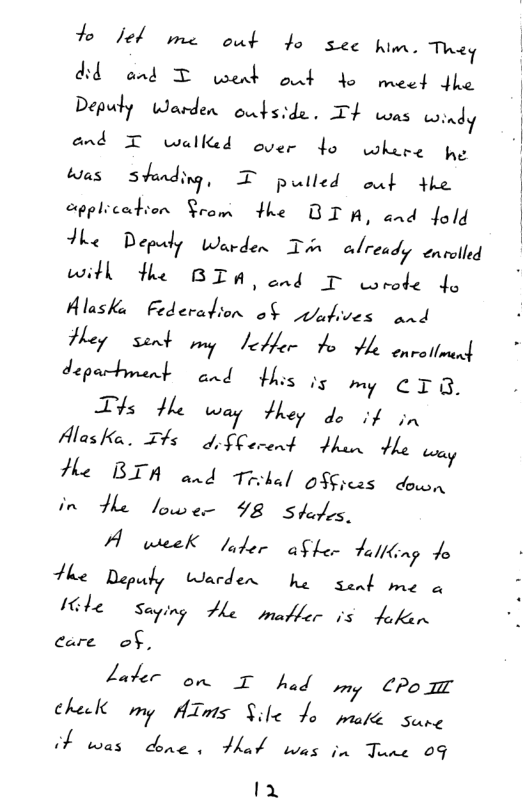 to let me out to see him. They
did and I went out to meet the
Deputy Warden outside. It was windy
and I walked over to where he
was standing. I pulled out the
application from the BIA, and told
the Deputy Warden I'm already enrolled
with the BIA, and I wrote to
Alaska Federation of Natives and
they sent my letter to the enrollment
department and this is my CIB.
Its the way they do it in
Alaska. Its different then the way
the BIA and Tribal offices down
in the lower 48 States.
A week later after talking to
the Deputy Warden he sent me a
Kite saying the matter is taken
care of.
Later on I had my CPO III
check my AIMS file to make sure
it was done, that was in June 09
12